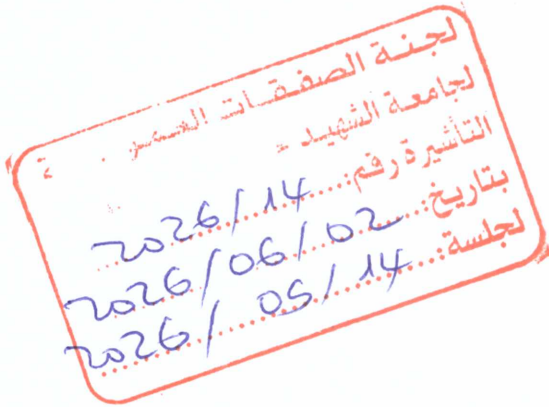 لجنة الصفقات
لجامعة الشهيد
التأشيرة رقم: 2026/14
بتاريخ: 2026/06/02
لجلسة: 2026/05/14